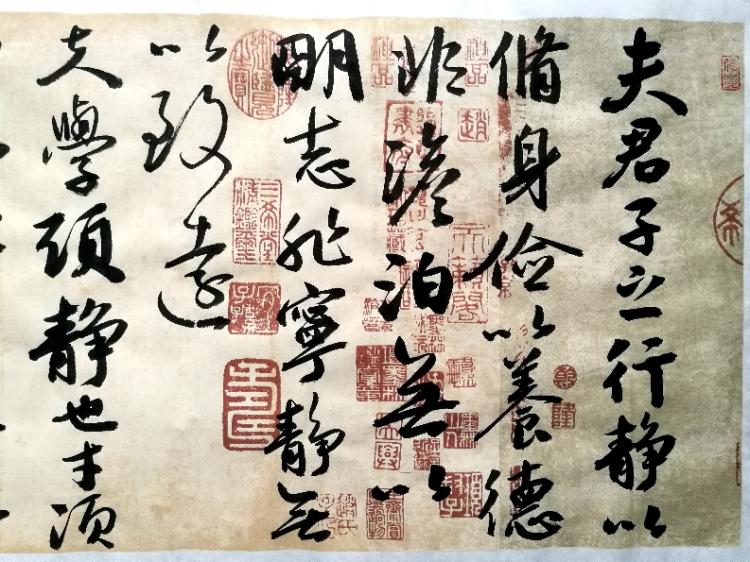 夫君子之行静以
脩身俭以養德
非澹泊無以
明志非寧静無
以致遠
夫學須静也才須